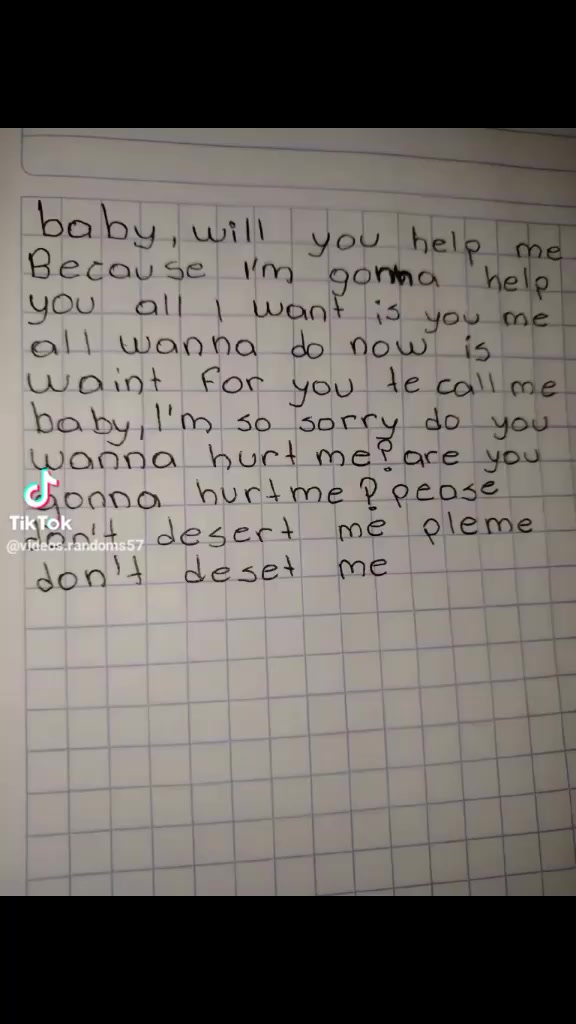 baby, will you help me
Because I'm gonna help
you all I want is you me
all wanna do now is
waint for you te call me
baby, I'm so sorry do you
wanna hurt me? are you
gonna hurt me? pease
don't desert me pleme
don't deset me
TikTok
@videos.randoms57